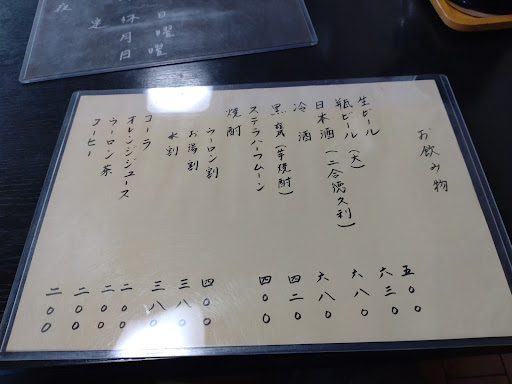 お飲み物
生ビール 五〇〇
瓶ビール(大) 六三〇
日本酒(二合徳久利) 六八〇
冷酒 六八〇
黒甕(芋焼酎) 四二〇
ステラハーフムーン 四〇〇
焼酎
ウーロン割 四〇〇
お湯割 三八〇
水割 三八〇
コーラ 二〇〇
オレンジジュース 二〇〇
ウーロン茶 二〇〇
コーヒー 二〇〇